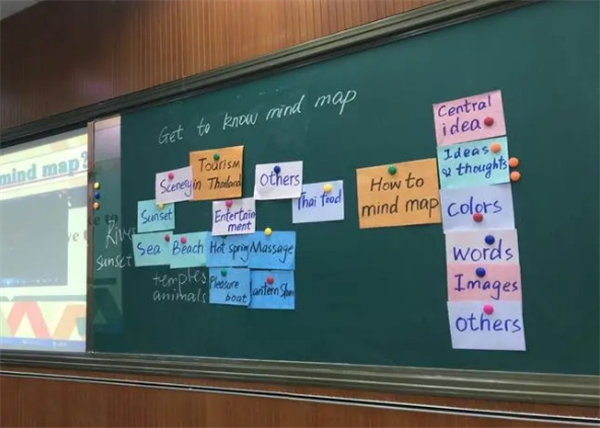 mind map?
Get to know mind map
Tourism
in Thailand
Scenery
Others
Sunset
Entertain
ment
Thai food
Sea
Beach
Hot spring
Massage
sunset
temples
animals
Pleasure
boat
How to
mind map
Central
idea
Ideas
& thoughts
Colors
Words
Images
Others